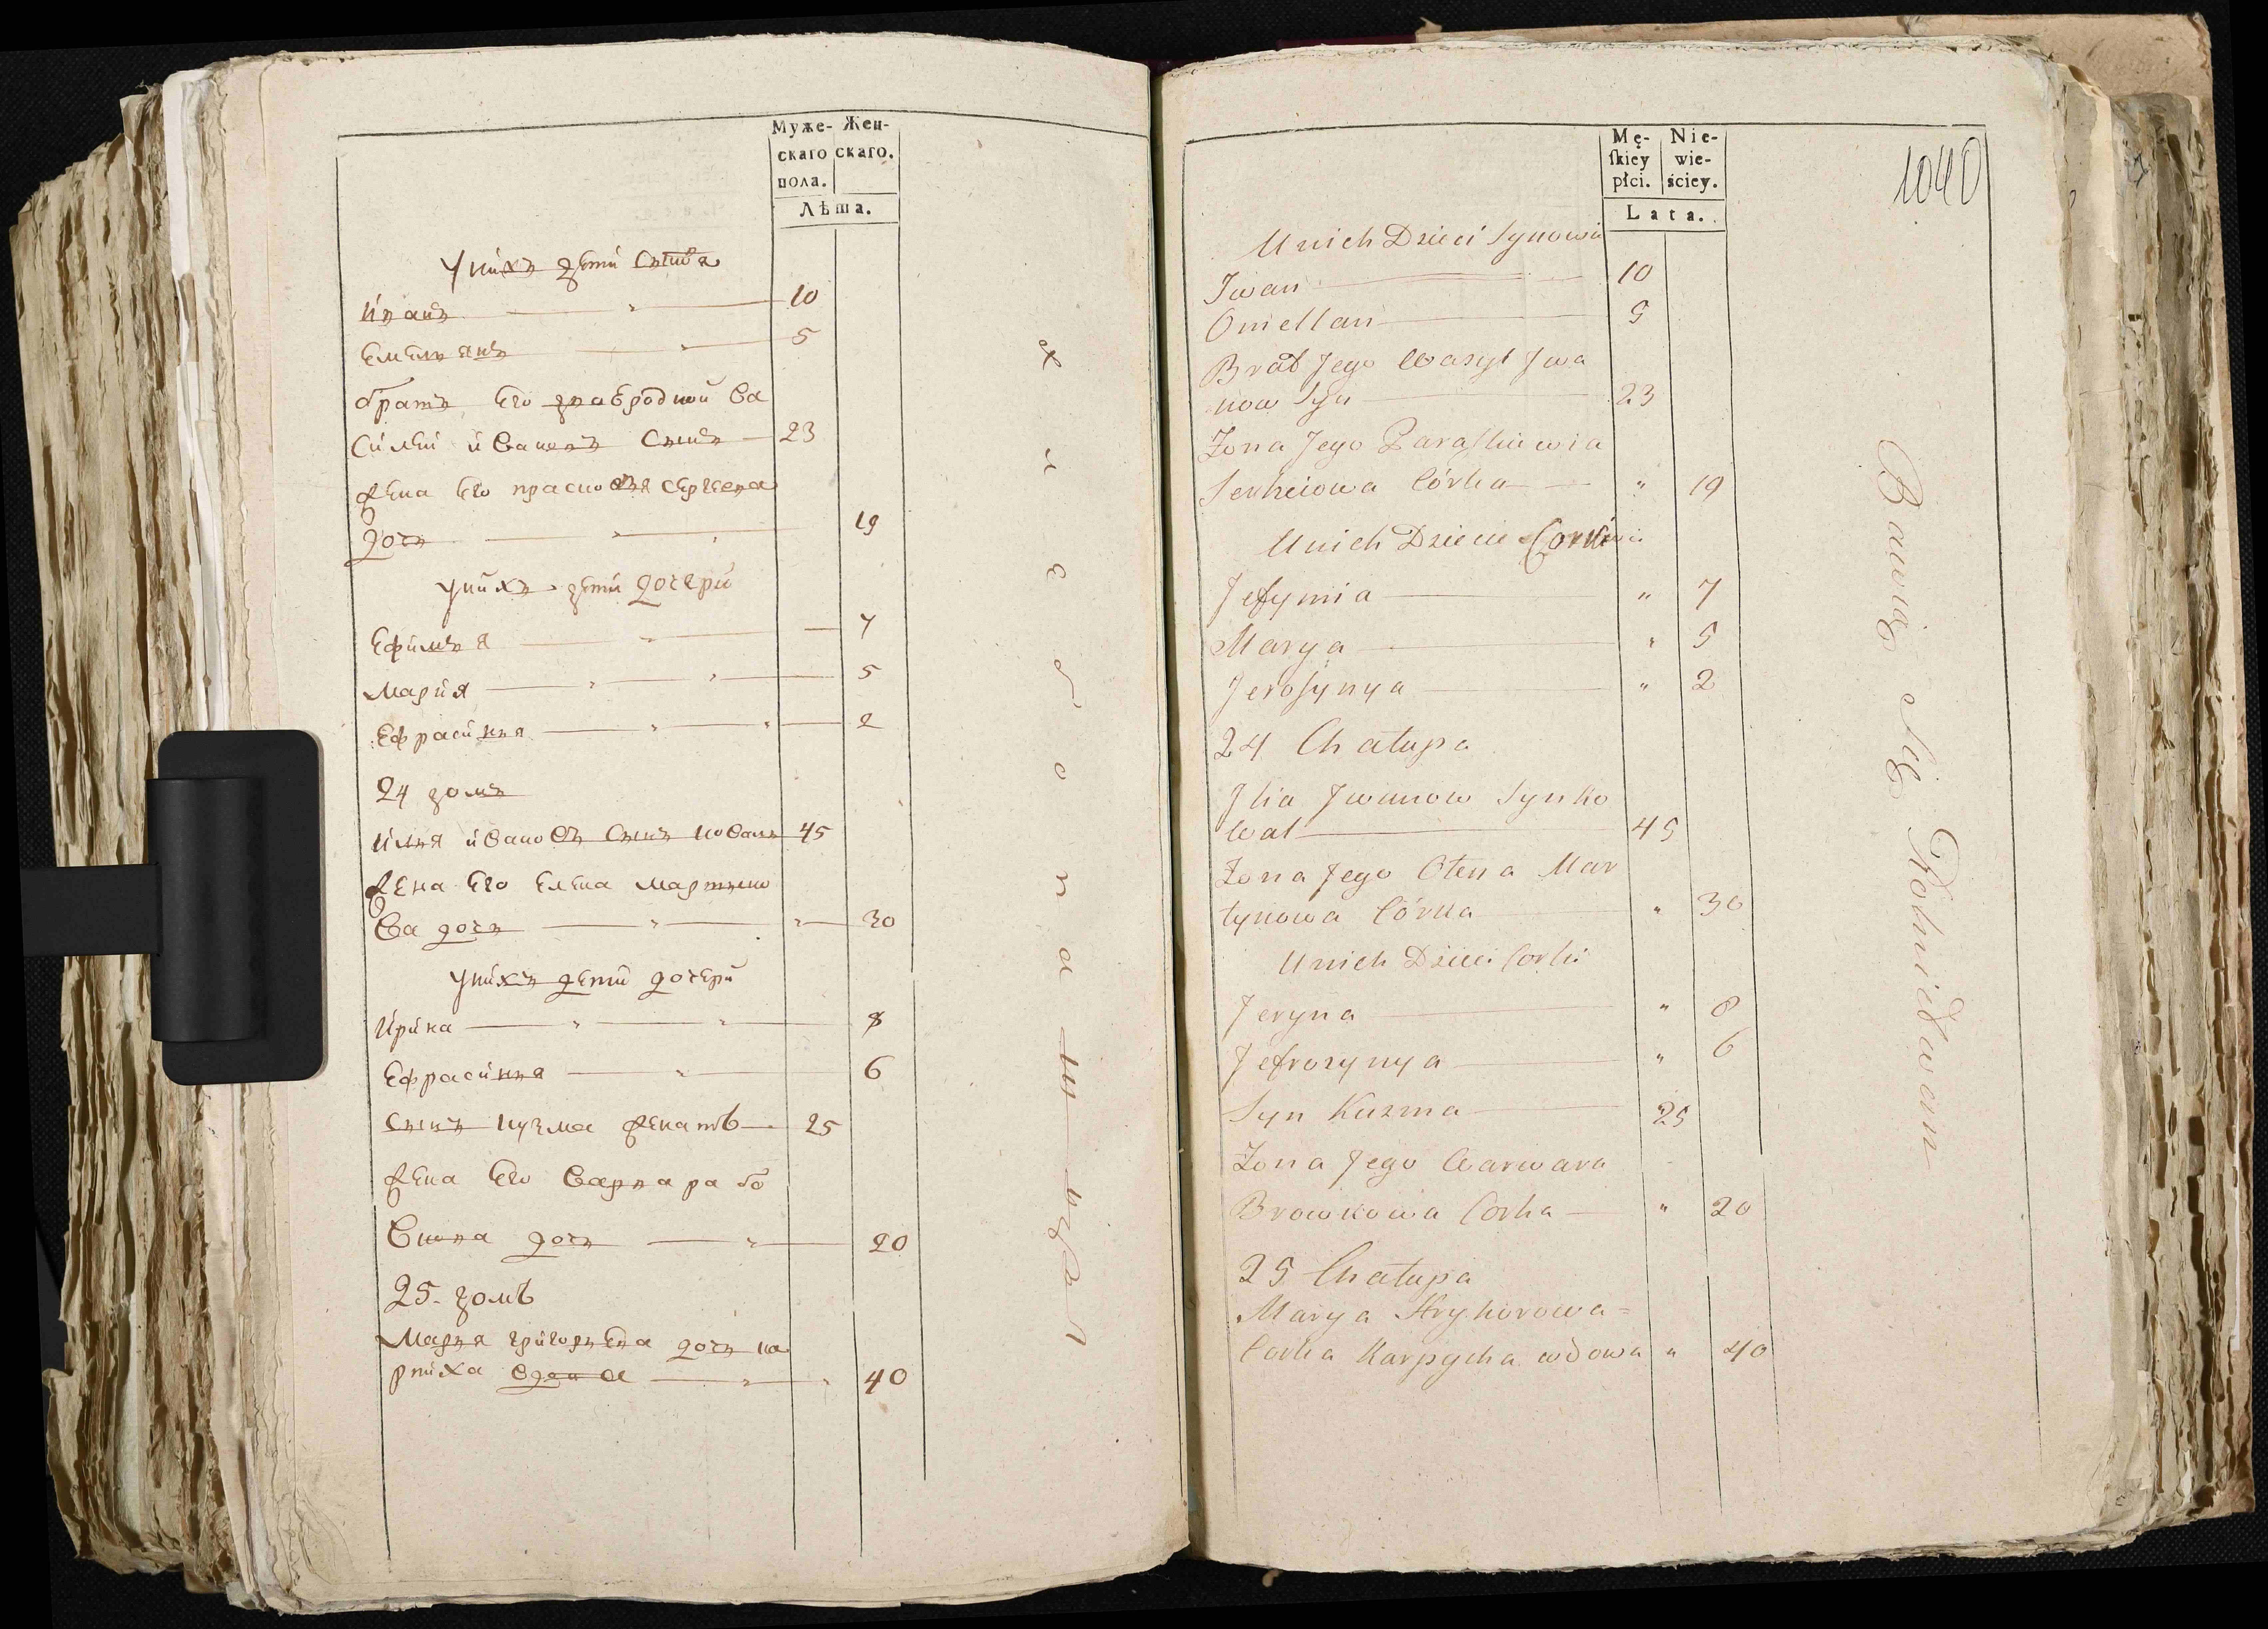 Муже- Жен-
скаго скаго.
пола.
Лѣта.
Уних дети сынвя
Иванъ 10
Емельянъ 5
братъ Его двавродной Ва
Силей ивановъ Сынъ 23
жена Его прасковья сергеева
дочь 19
Унихъ дети дочери
Ефимья 7
Мария 5
Ефрасинья 2
24 домъ
Илья ивановъ Сынъ коваль 45
жена Его Елена мартыно
ва дочь 30
Унихъ дети дочери
Ирина 8
Ефрасинья 6
Сынъ кузма женатъ 25
жена Его Варвара бо
Вкова дочь 20
25 домъ
Марья григорьева дочь ка
рпиха вдова 40
хлебопа
Mę- Nie-
skiey wie-
płci. ściey.
Lata.
1040
Unich Dzieci Synowie
Jwan 10
Omellan 5
Brat Jego Wasyl Jwa
now Syn 23
Żona Jego Paraskiewia
Serheiowa Córka " 19
Unich Dziecie Corki
Jefymia " 7
Marya " 5
Jerosynya " 2
24 Chałupa
Jlia Jwanow Syn Ko
wal 45
Żona Jego Olena Mar
tynowa Córka " 30
Unich Dzieci Corki
Jeryna " 8
Jefrozynya " 6
Syn Kuzma 25
Żona Jego Warwara
Browkowa Corka " 20
25 Chałupa
Marya Hryhorowa=
Corka Karpycha wdowa " 40
Bawią się Rolnictwem